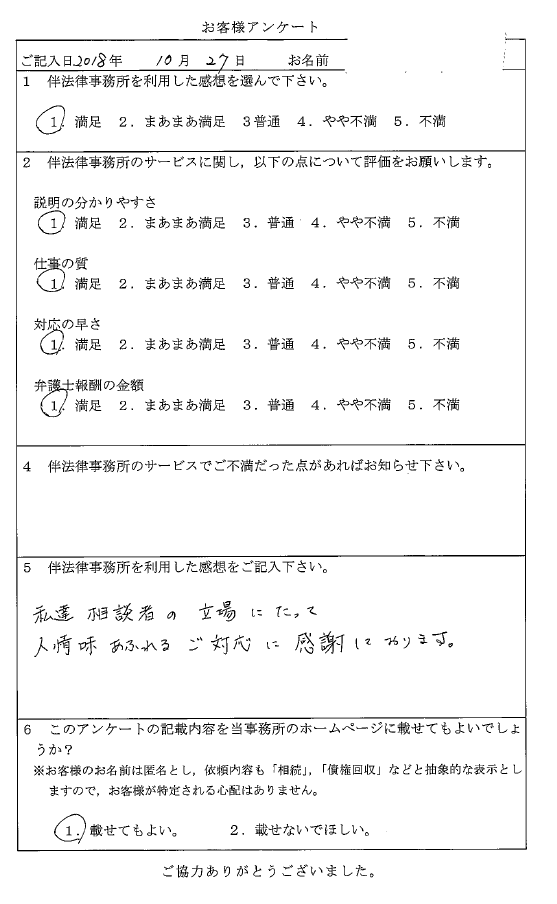 お客様アンケート
ご記入日2018年 10月 27日 お名前
1 伴法律事務所を利用した感想を選んで下さい。
1. 満足 2. まあまあ満足 3普通 4. やや不満 5. 不満
2 伴法律事務所のサービスに関し,以下の点について評価をお願いします。
説明の分かりやすさ
1. 満足 2. まあまあ満足 3. 普通 4. やや不満 5. 不満
仕事の質
1. 満足 2. まあまあ満足 3. 普通 4. やや不満 5. 不満
対応の早さ
1. 満足 2. まあまあ満足 3. 普通 4. やや不満 5. 不満
弁護士報酬の金額
1. 満足 2. まあまあ満足 3. 普通 4. やや不満 5. 不満
4 伴法律事務所のサービスでご不満だった点があればお知らせ下さい。
5 伴法律事務所を利用した感想をご記入下さい。
私達 相談者の 立場にたって
人情味あふれる ご対応に 感謝しております。
6 このアンケートの記載内容を当事務所のホームページに載せてもよいでしょ
うか?
※お客様のお名前は匿名とし,依頼内容も「相続」,「債権回収」などと抽象的な表示とし
ますので,お客様が特定される心配はありません。
1. 載せてもよい。 2. 載せないでほしい。
ご協力ありがとうございました。